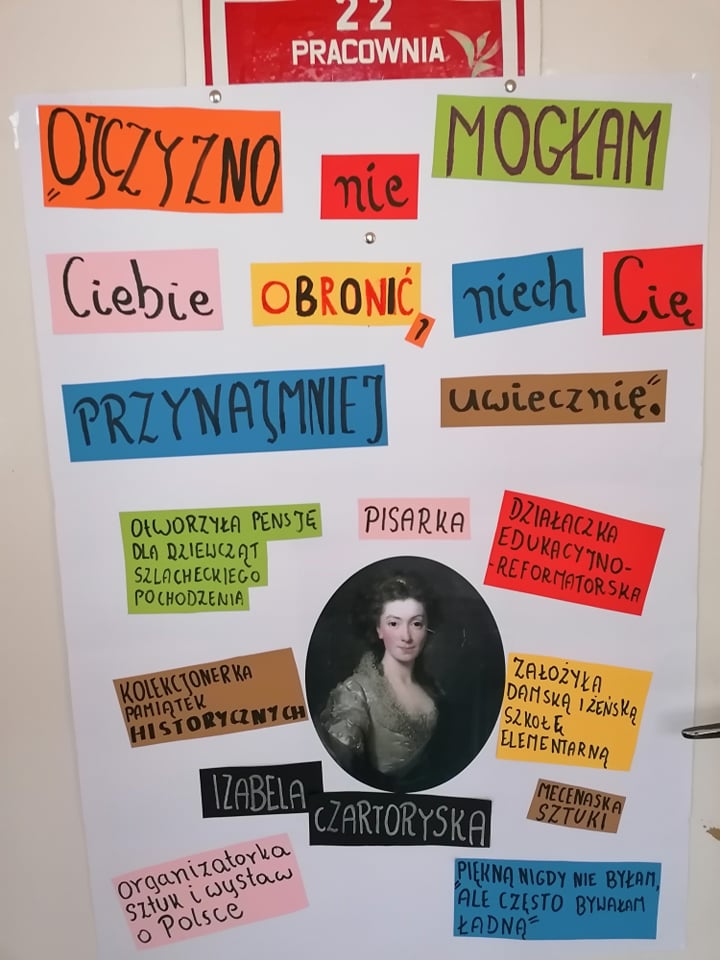 22
PRACOWNIA
„OJCZYZNO nie MOGŁAM
Ciebie OBRONIĆ, niech Cię
PRZYNAJMNIEJ uwiecznię”.
OTWORZYŁA PENSJĘ
DLA DZIEWCZĄT
SZLACHECKIEGO
POCHODZENIA
PISARKA
DZIAŁACZKA
EDUKACYJNO-
-REFORMATORSKA
KOLEKCJONERKA
PAMIĄTEK
HISTORYCZNYCH
ZAŁOŻYŁA
DAMSKĄ I ŻEŃSKĄ
SZKOŁĘ
ELEMENTARNĄ
IZABELA
CZARTORYSKA
MECENASKA
SZTUKI
organizatorka
sztuk i wystaw
o Polsce
„PIĘKNĄ NIGDY NIE BYŁAM,
ALE CZĘSTO BYWAŁAM
ŁADNĄ”